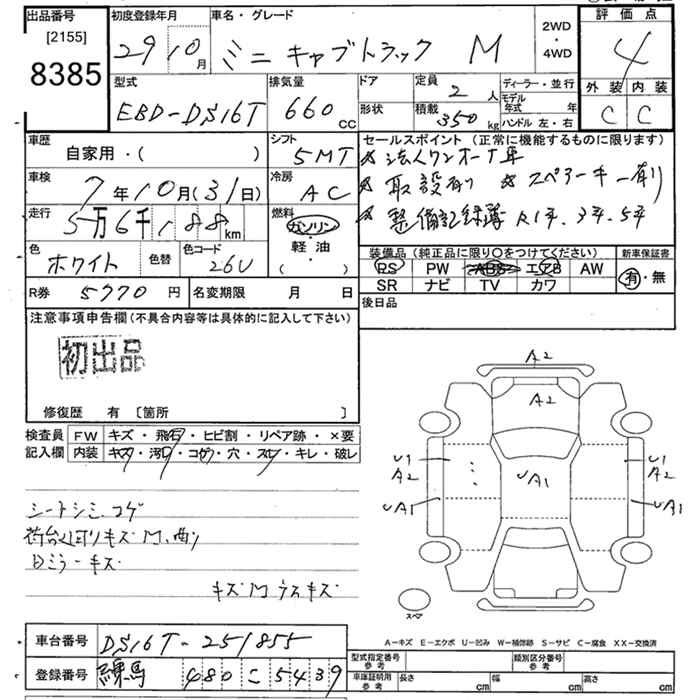 出品番号 初度登録年月 車名・グレード 2WD・4WD 評価点
[2155] 8385 29 10月 ミニキャブトラック M 4
型式 排気量 ドア 定員 2人 ディーラー・並行 外装 内装
EBD-DS16T 660cc 形状 積載 350kg モデル年式 年 ハンドル 左・右 C C
車歴 シフト セールスポイント (正常に機能するものに限ります)
自家用・( ) 5MT ★法人ワンオーナ車
車検 冷房 ★取説有り ★スペアーキー有り
7年10月(31日) AC ★整備記録簿 R1年.3年.5年
走行 5万6千188km 燃料 ガソリン・軽・油 ( )
色 ホワイト 色替 色コード 26U
装備品 (純正品に限り○をつけてください) 新車保証書
PS PW ABS エアB AW 有・無
SR ナビ TV カワ
R券 5770円 名変期限 月 日 後日品
注意事項申告欄(不具合内容等は具体的に記入して下さい)
初出品
修復歴 有 [箇所 ]
検査員記入欄 FW キズ・飛石・ヒビ割・リペア跡・×要
内装 キズ・汚れ・コゲ・穴・スレ・キレ・破レ
シートシミ、コゲ
キズM
A2
A2
U1 A2 UA1 U1 A2
UA1 UA1
スペア
A-キズ E-エクボ U-凹み W-補修跡 S-サビ C-腐食 XX-交換済
車台番号 DS16T-251855
登録番号 練馬 480 こ 5439
型式指定番号 参考 類別区分番号 参考
車庫証明用 参考 長さ cm 幅 cm 高さ cm